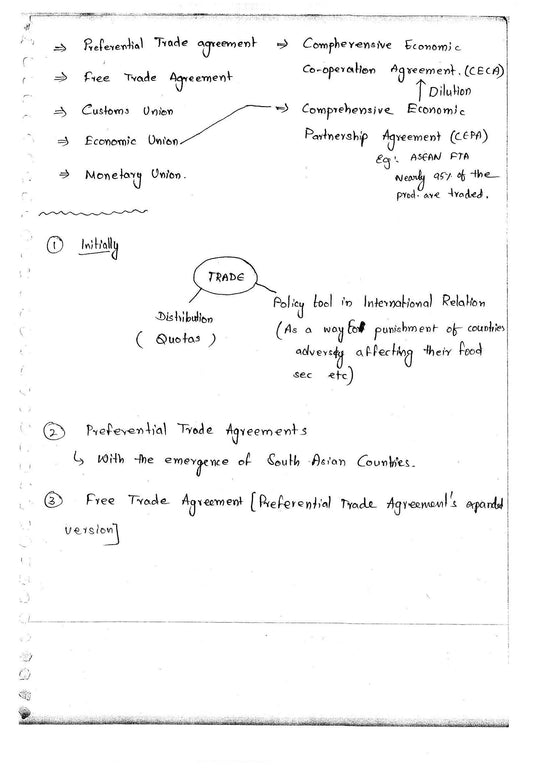 ⇒ Preferential Trade agreement
⇒ Free Trade Agreement
⇒ Customs Union
⇒ Economic Union
⇒ Monetary Union.
⇒ Compherensive Economic
Co-operation Agreement. (CECA)
↑ Dilution
⇒ Comprehensive Economic
Partnership Agreement (CEPA)
Eg: ASEAN FTA
Nearly 95% of the
prod. are traded.
① Initially
TRADE
Distribution
(Quotas)
Policy tool in International Relation
(As a way for punishment of countries
adversely affecting their food
sec etc)
② Preferential Trade Agreements
↳ With the emergence of South Asian Countries.
③ Free Trade Agreement [Preferential Trade Agreement's expanded
version]